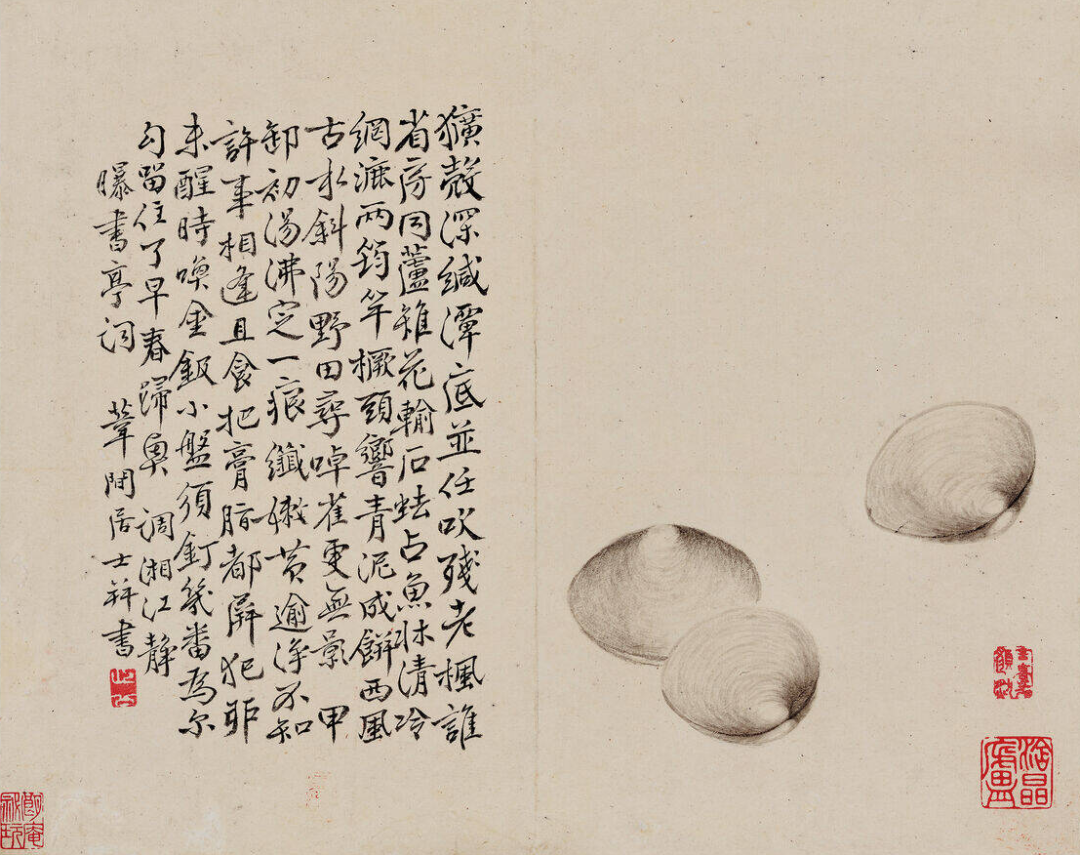 獷殼深緘潭底並任吹殘老楓誰
省房同蘆雉花輸石占魚牀清冷
網漉兩筠竿橛頭響青泥成餅西風
古水斜陽野田尋啅雀更無影 甲
卸初湯沸定一痕纖嫩黃逾淨不知
許事相逢且食把膏脂都屏犯卯
未醒時喚金鈒小盤須飣幾番為尔
勾留住了早春歸興 調湘江靜
曝書亭詞 葦間居士并書